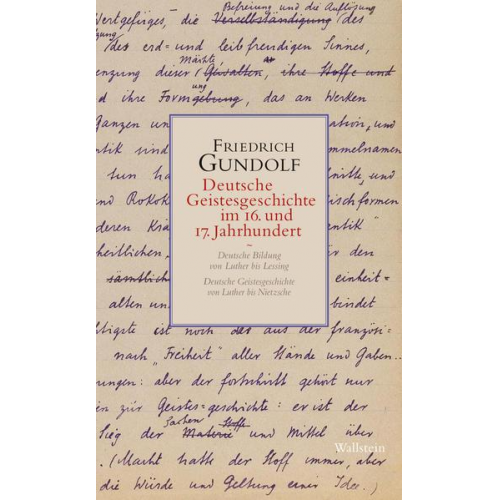 Befreiung und die Auflösung
Wertgefüges, die Verselbständigung des
des erd= und leibfreudigen Sinnes,
Mächte
enzung dieser Gestalten, ihre Stoffe und
ung
d ihre Formgebung, das an Werken
Ganzen un
ation, und
tik sind
mmelnamen
tun ha
und Rokok
ischformen
deren Kein
antik"
heitlichen,
den
sämtliche
einheit-
alten un
bindet
ltigste ist noch der aus der französi-
nach "Freiheit" aller Stände und Gaben..
ungen: aber der fortschritt gehört nur
en zur Geistes=geschichte: er ist der
Sachen Stoff
Sieg der Materie und Mittel über
(Macht hatte der Stoff immer, aber
die Würde und Geltung einer Idee.)
FRIEDRICH
GUNDOLF
Deutsche
Geistesgeschichte
im 16. und
17. Jahrhundert
~
Deutsche Bildung
von Luther bis Lessing
Deutsche Geistesgeschichte
von Luther bis Nietzsche
Wallstein